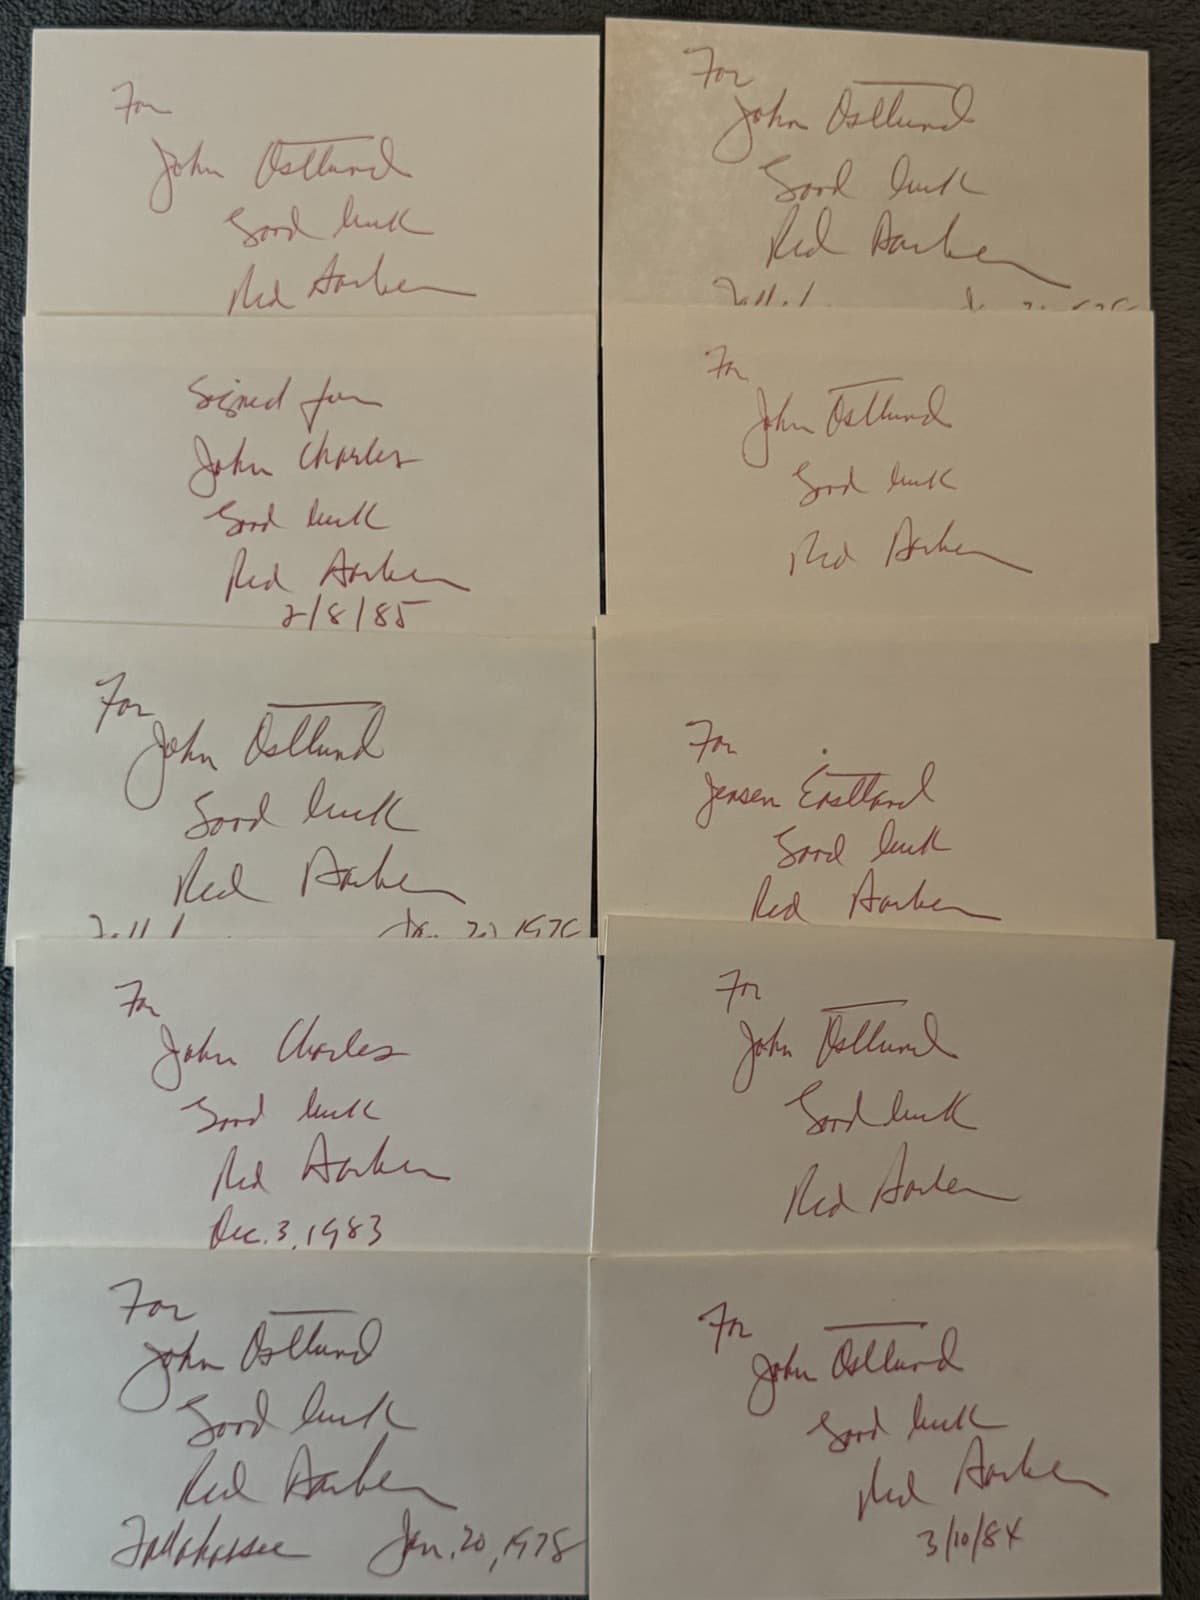 For
John Ostlund
Good luck
Red Barber
Signed for
John Charles
Good luck
Red Barber
2/8/85
For
John Ostlund
Good luck
Red Barber
For
John Charles
Good luck
Red Barber
Dec. 3, 1983
For
John Ostlund
Good luck
Red Barber
Tallahassee Jan. 20, 1978
For
John Ostlund
Good luck
Red Barber
For
John Ostlund
Good luck
Red Barber
For
Jensen Eastland
Good luck
Red Barber
For
John Ostlund
Good luck
Red Barber
For
John Ostlund
Good luck
Red Barber
3/10/84